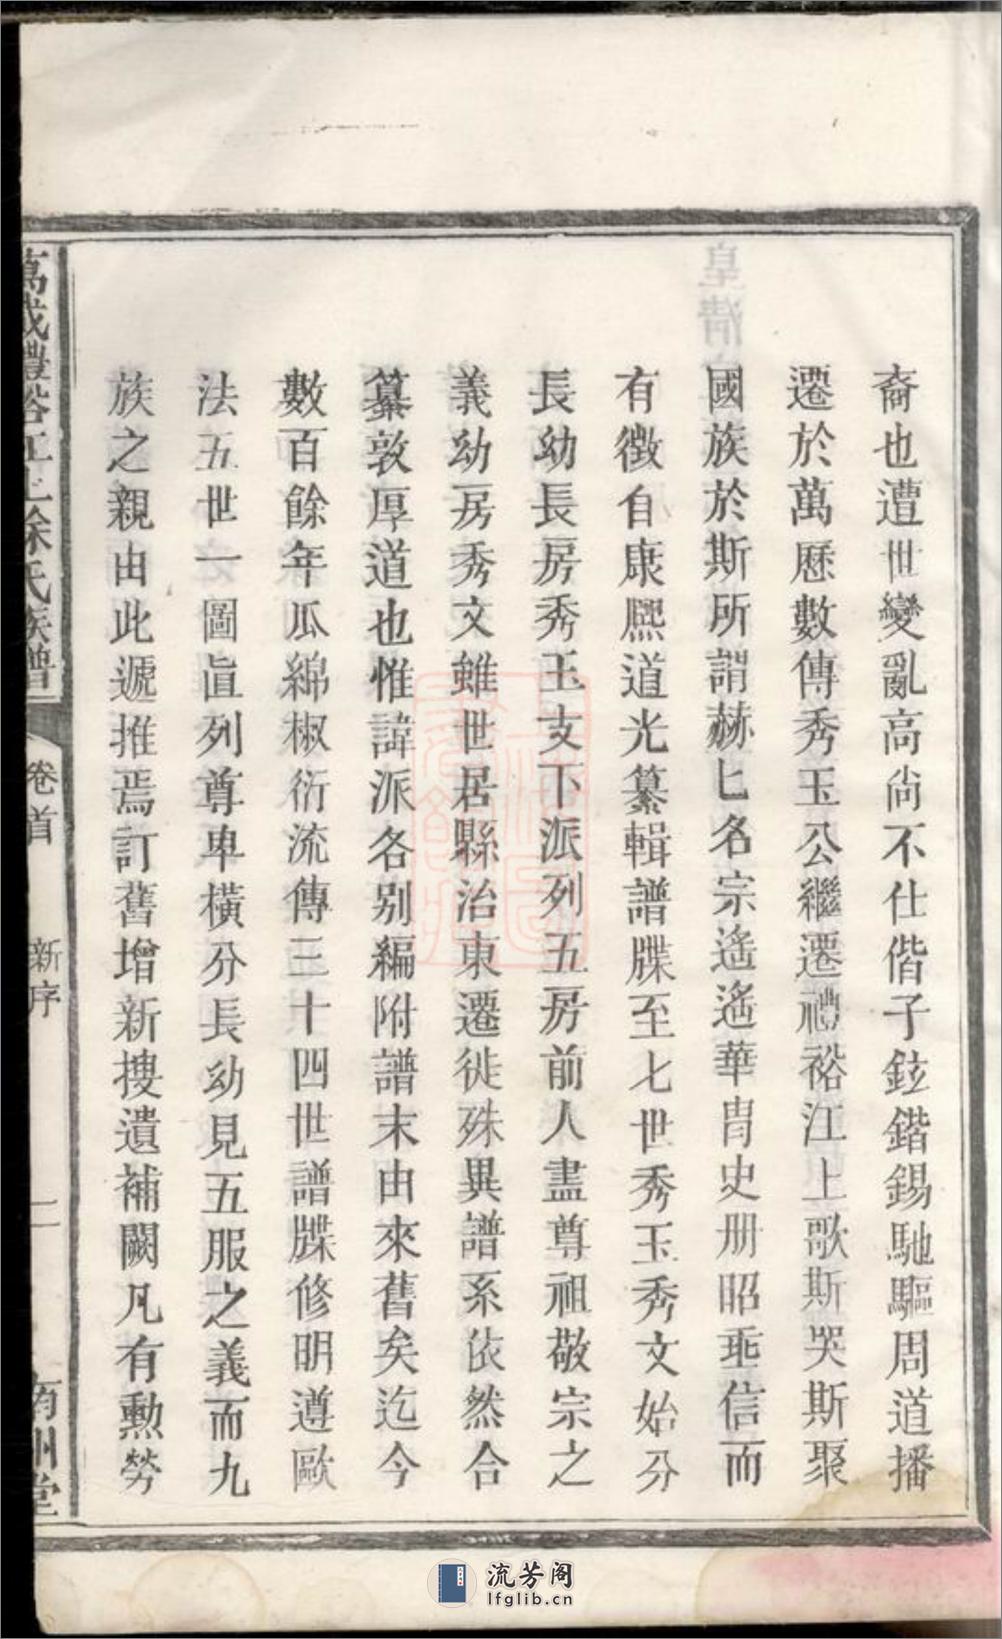 裔也遭世變亂高尙不仕偕子鉉鍇錫馳驅周道播
遷於萬歷數傳秀玉公繼遷禮裕江上歌斯哭斯聚
國族於斯所謂赫匕名宗遙遙華胄史册昭垂信而
有徵自康熈道光纂輯譜牒至七世秀玉秀文始分
長幼長房秀玉支下派列五房前人盡尊祖敬宗之
義幼房秀文雖世居縣治東遷徙殊異譜系依然合
纂敦厚道也惟諱派各别編附譜末由來舊矣迄今
數百餘年瓜綿椒衍流傳三十四世譜牒修明遵歐
法五世一圖直列尊卑橫分長幼見五服之義而九
族之親由此遞推焉訂舊增新搜遺補闕凡有勳勞
萬載禮裕江上徐氏族譜
卷首
新序
二
南州堂
流芳阁
lfglib.cn